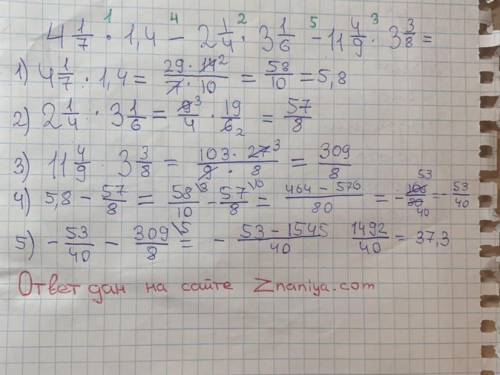 4 1/7 · 1,4 − 2 1/4 · 3 1/6 − 11 4/9 · 3 3/8 =
1) 4 1/7 · 1,4 = 29 · 14²/7 · 10 = 58/10 = 5,8
2) 2 1/4 · 3 1/6 = 9³/4 · 19/6₂ = 57/8
3) 11 4/9 · 3 3/8 = 103 · 27³/9 · 8 = 309/8
4) 5,8 − 57/8 = 58\8/10 − 57\10/8 = 464 − 570/80 = − 106 53/80 40 = − 53/40
5) − 53/40 − 309\5/8 = − 53 − 1545/40 1492/40 = 37,3
Ответ дан на сайте Znaniya.com